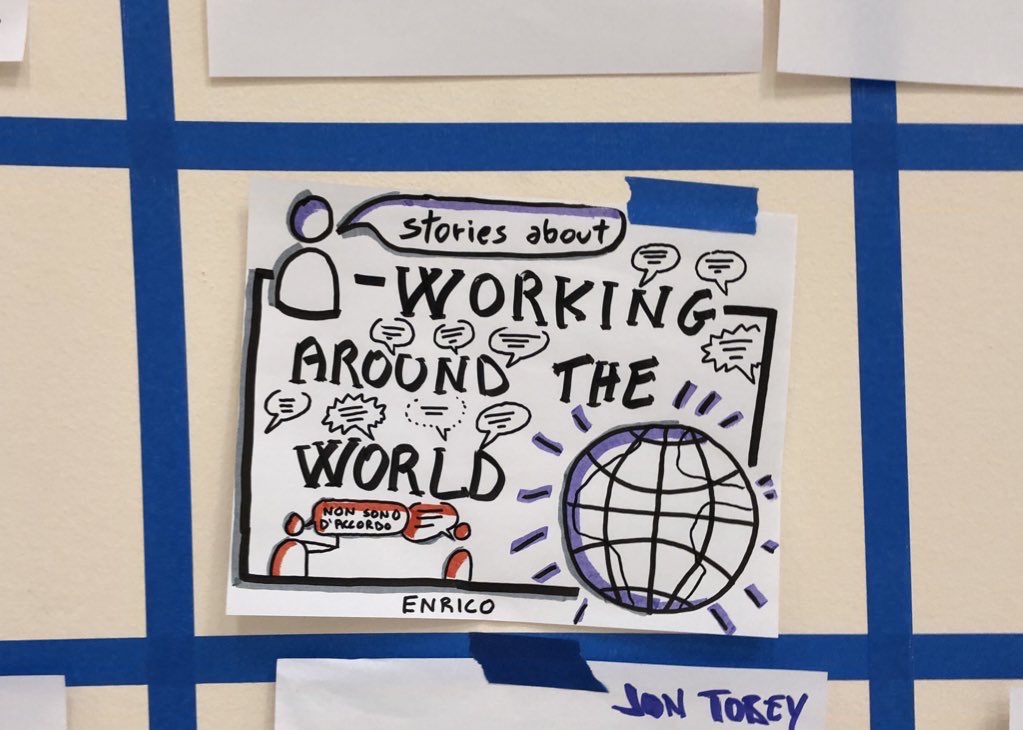 stories about
-WORKING
AROUND THE
WORLD
NON SONO
D'ACCORDO
ENRICO
JON TOBEY